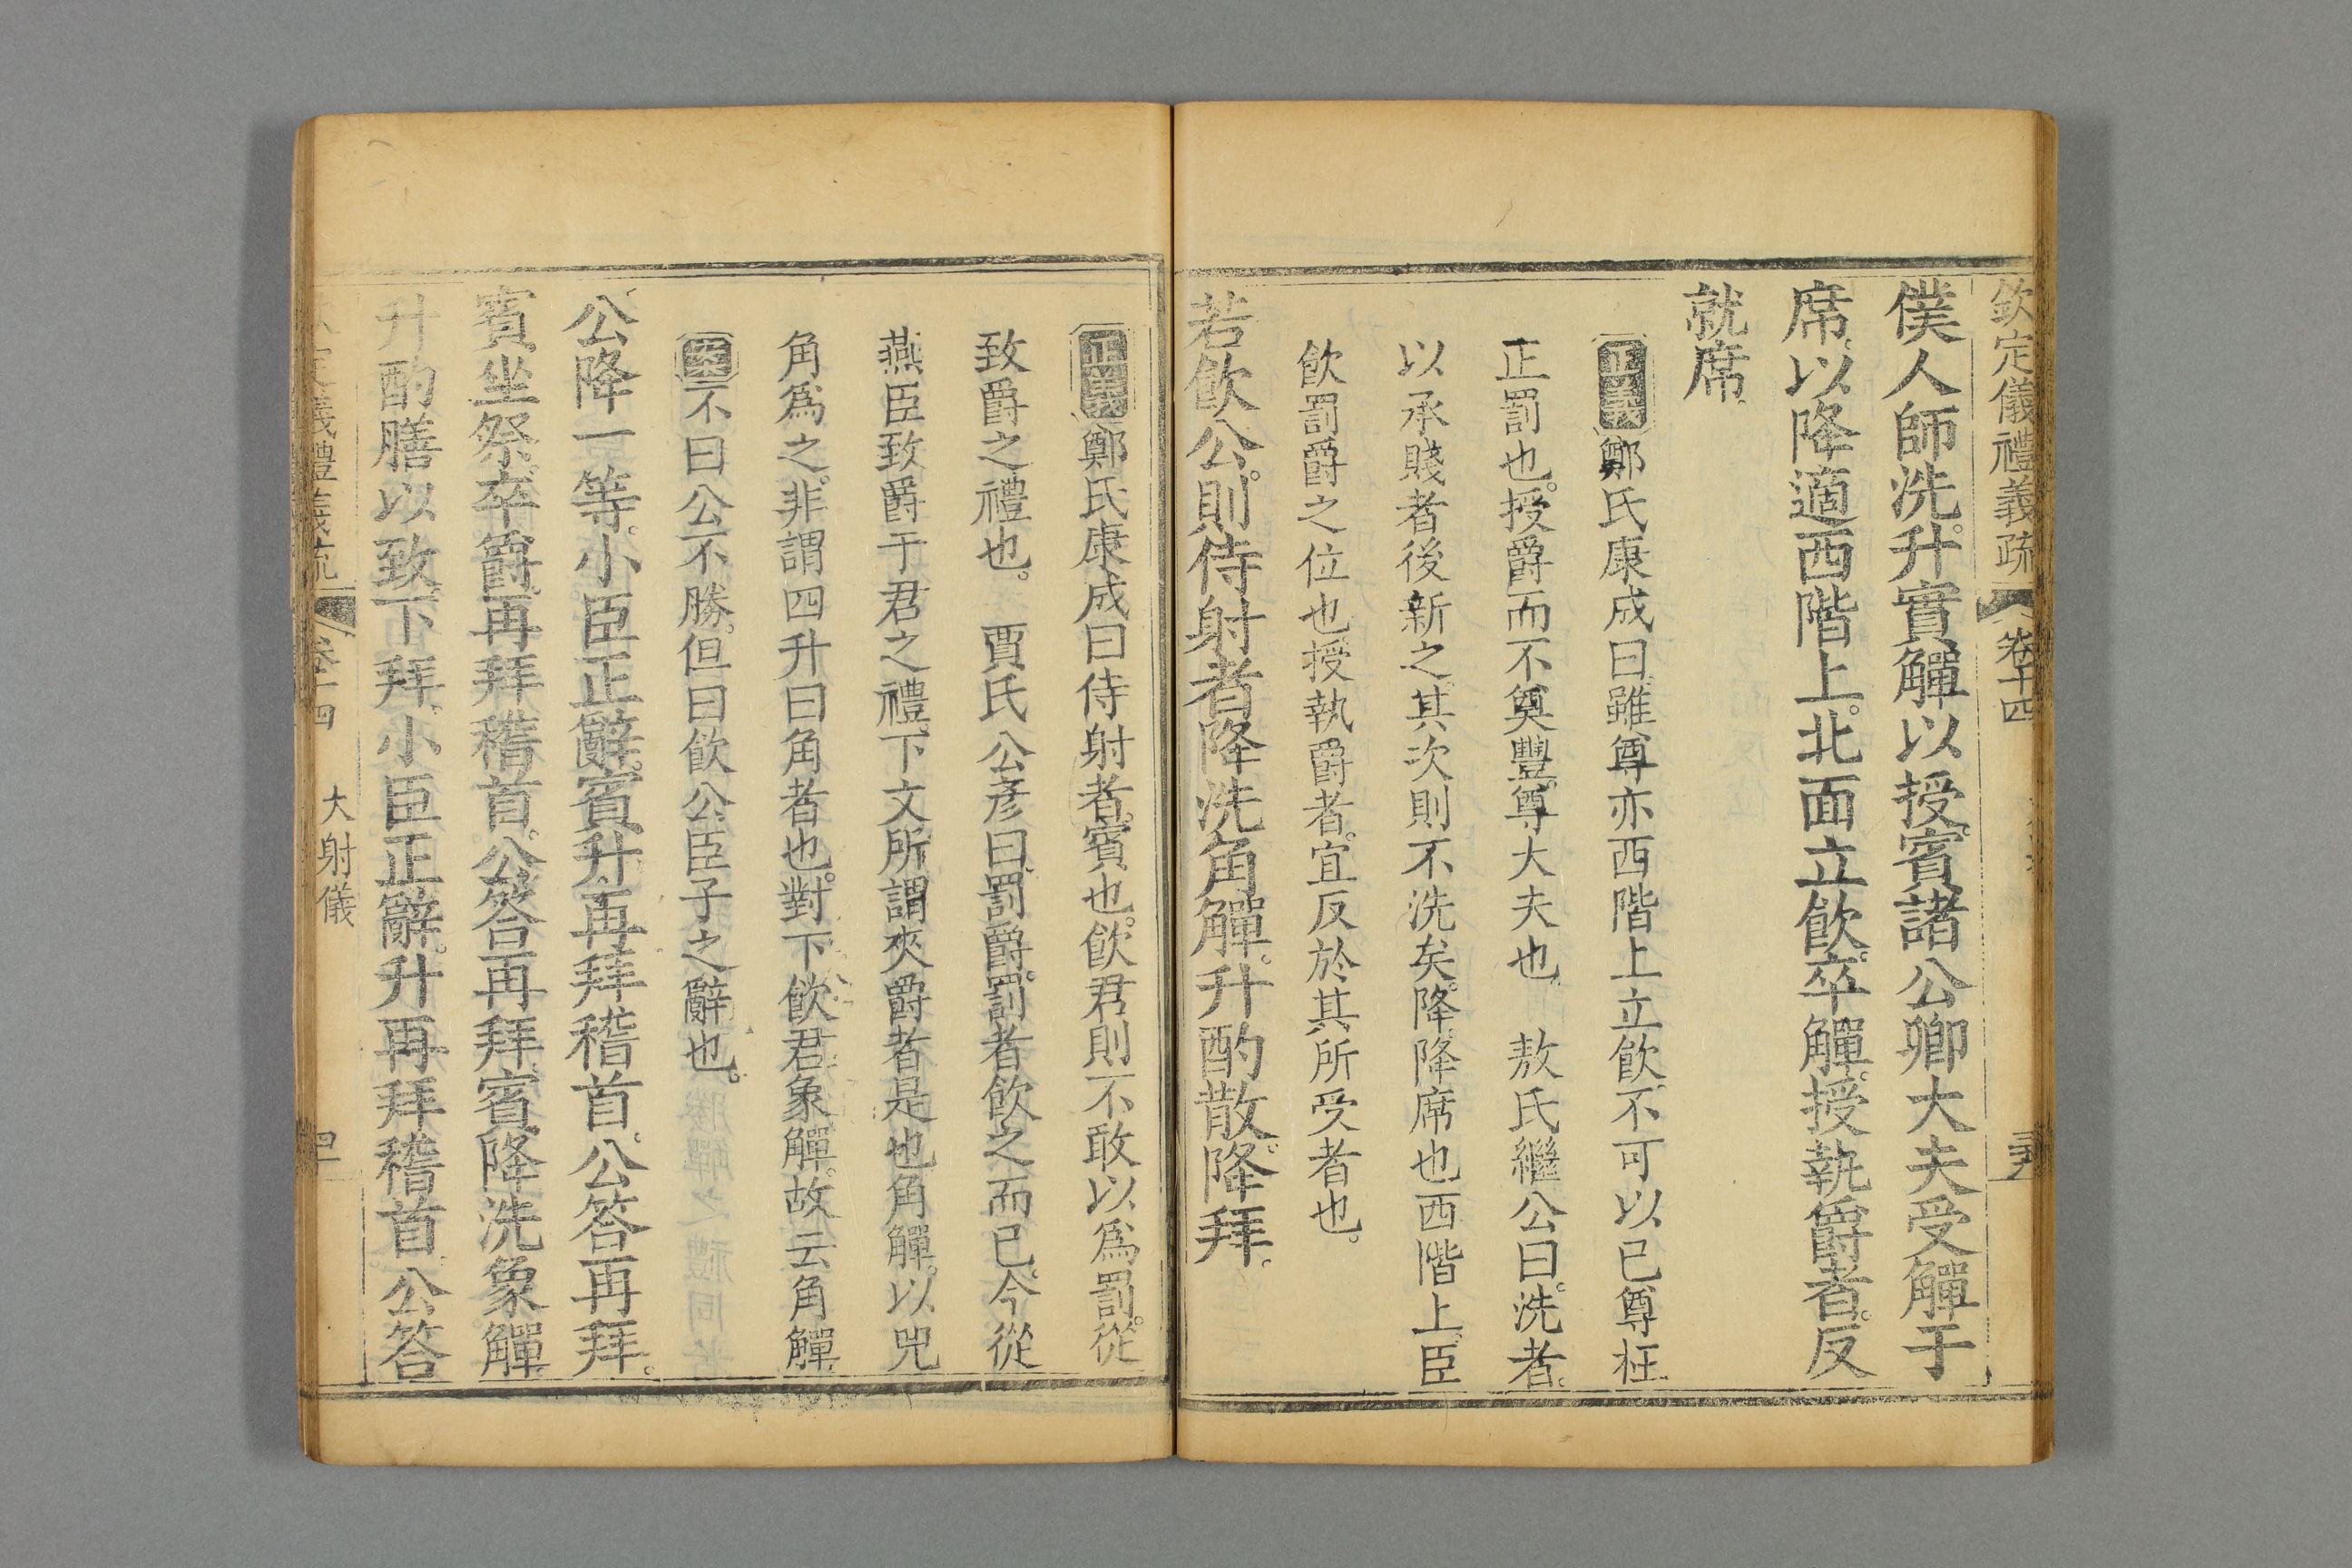 欽定儀禮義疏 卷十四
僕人師洗。升實觶以授。賓諸公卿大夫受觶于
席。以降適西階上。北面立飲。卒觶。授執爵者。反
就席。
正義 鄭氏康成曰。雖尊亦西階上立飲。不可以已尊枉
正罰也。授爵而不奠豐。尊大夫也。 敖氏繼公曰。洗者。
以承賤者後新之。其次則不洗矣。降。降席也。西階上。臣
飲罰爵之位也。授執爵者。宜反於其所受者也。
若飲公。則侍射者降。洗角觶。升酌散。降拜。
正義 鄭氏康成曰。侍射者。賓也。飲君則不敢以爲罰。從
致爵之禮也。 賈氏公彥曰。罰爵。罰者飲之而已。今從
燕臣致爵于君之禮。下文所謂夾爵者是也。角觶。以兕
角爲之。非謂四升曰角者也。對下飲君象觶。故云角觶。
不曰公不勝。但曰飲公。臣子之辭也。
公降一等。小臣正辭。賓升再拜稽首。公答再拜。
賓坐祭。卒爵。再拜稽首。公答再拜。賓降洗象觶。
升酌膳以致。下拜。小臣正辭。升再拜稽首。公答
定儀禮義疏 卷十四 大射儀